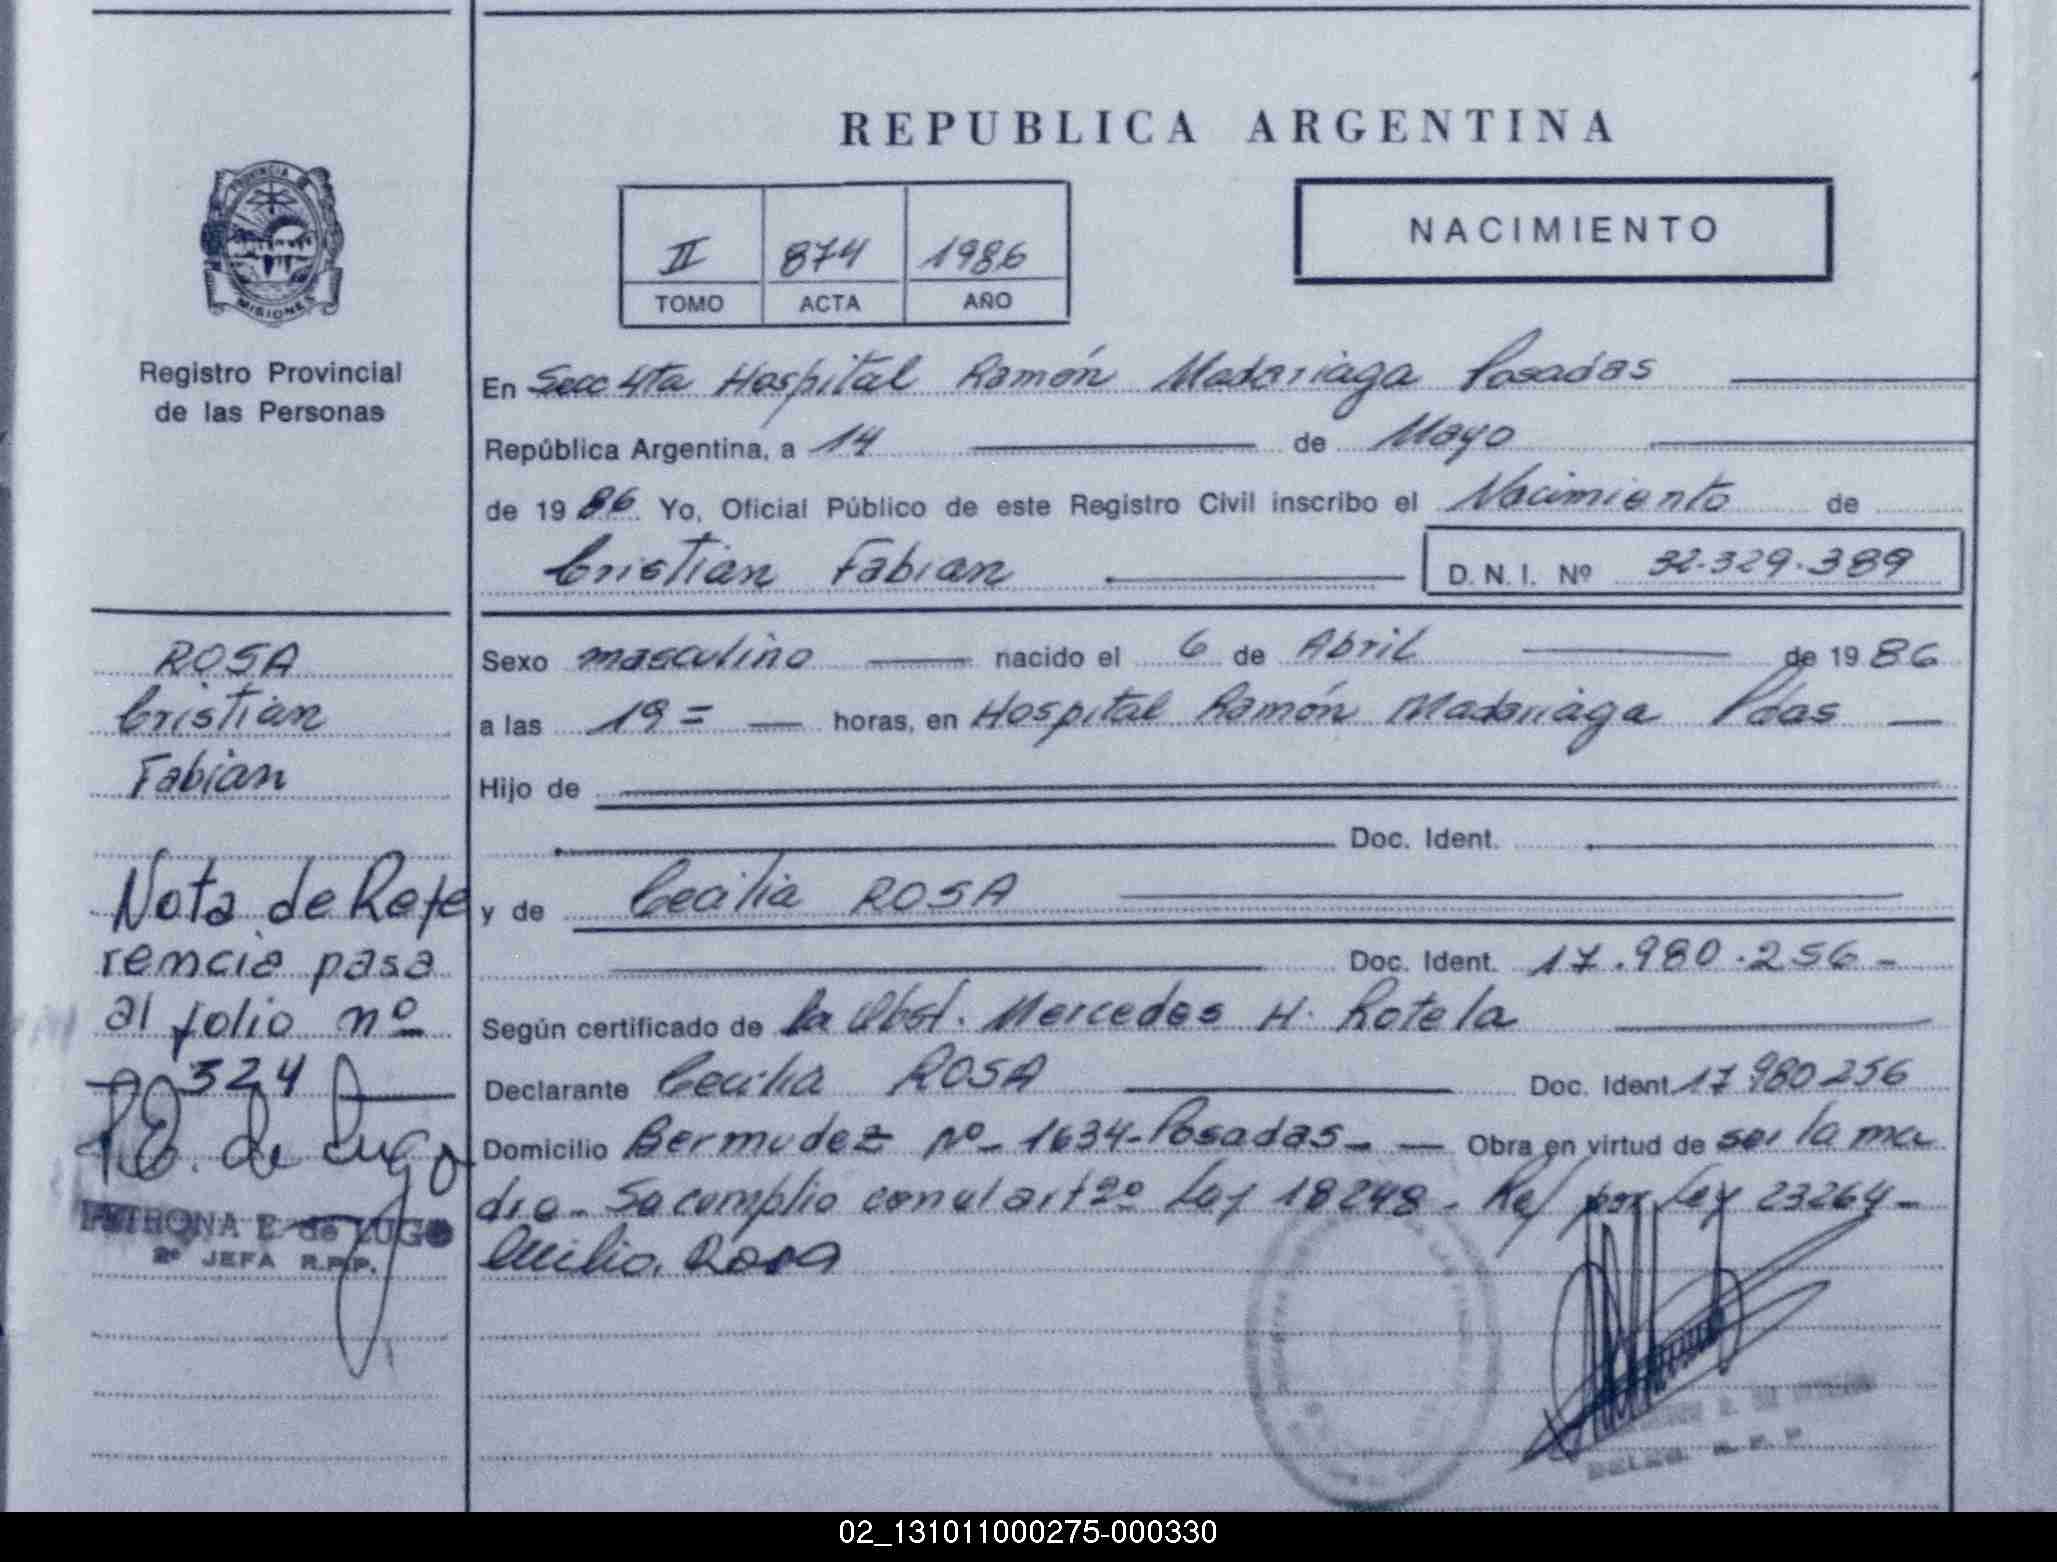 REPUBLICA ARGENTINA
PROVINCIA DE
MISIONES
Registro Provincial
de las Personas
II 874 1986
TOMO ACTA AÑO
NACIMIENTO
En Secc 4ta Hospital Ramón Madariaga Posadas
República Argentina, a 14 de Mayo
de 1986 Yo, Oficial Público de este Registro Civil inscribo el Nacimiento de
Cristian Fabian D.N.I. Nº 32.329.389
ROSA
Cristian
Fabian
Nota de Refe
rencia pasa
al folio nº
324
P.E. de Lugo
PETRONA E. de LUGO
2º JEFA R.P.P.
Sexo masculino nacido el 6 de Abril de 1986
a las 19= horas, en Hospital Ramón Madariaga Pdas
Hijo de
Doc. Ident.
y de Cecilia ROSA
Doc. Ident. 17.980.256-
Según certificado de la Obst. Mercedes H. Rotela
Declarante Cecilia ROSA Doc. Ident. 17980256
Domicilio Bermudez nº- 1634-Posadas- Obra en virtud de ser la ma
dre- Se cumplio con el art 2º Ley 18248. Ref por Ley 23264-
Cecilia Rosa
R. P. P.
02_131011000275-000330